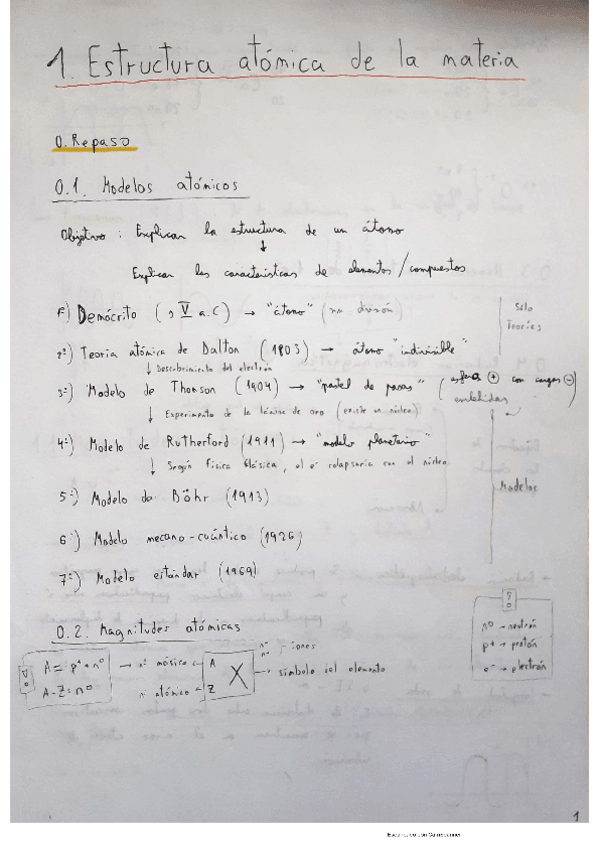 1. Estructura atómica de la materia
0. Repaso
0.1. Modelos atómicos
Objetivo: Explicar la estructura de un átomo
↓
Explicar las características de elementos/compuestos
1º) Demócrito (s V a.C) → "átomo" (sin división)
Sólo
Teorías
2º) Teoría atómica de Dalton (1803) → átomo "indivisible"
↓ Descubrimiento del electrón
3º) Modelo de Thomson (1904) → "pastel de pasas" (esfera ⊕ con cargas ⊖
embebidas)
↓ Experimento de la lámina de oro (existe un núcleo)
4º) Modelo de Rutherford (1911) → "modelo planetario"
↓ Según física clásica, el e⁻ colapsaría con el núcleo
Modelos
5º) Modelo de Böhr (1913)
6º) Modelo mecano-cuántico (1926)
7º) Modelo estándar (1969)
0.2. Magnitudes atómicas
A = p⁺ + n⁰ → nº másico ← A
A-Z = n⁰
nº atómico ← Z
X
→ símbolo del elemento
n⁰ → neutrón
p⁺ → protón
e⁻ → electrón
1